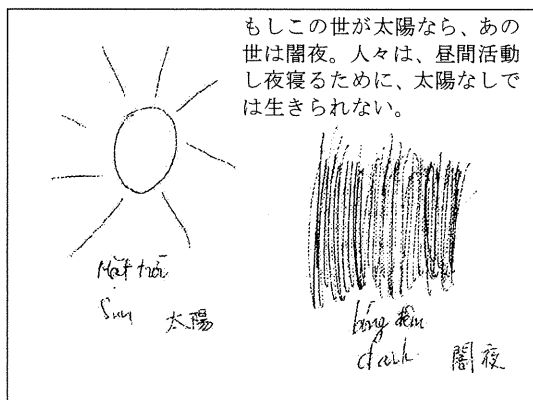 もしこの世が太陽なら、あの
世は闇夜。人々は、昼間活動
し夜寝るために、太陽なしで
は生きられない。
Mặt trời
Sun 太陽
bóng đêm
dark 闇夜